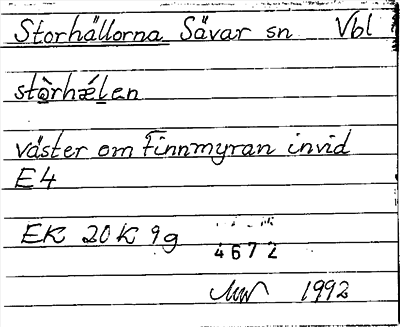 Storhällorna Sävar sn Vbl
stòrhǽlen
väster om Finnmyran invid
E4
EK 20K 9g
4672
1992